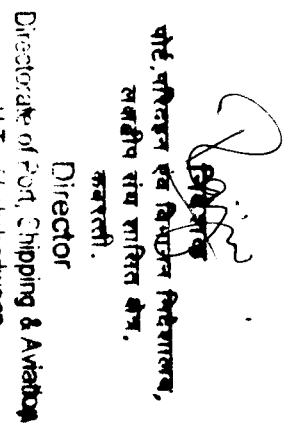 निदेशक
पोर्ट, परिवहन एवं विमानन निदेशालय,
लक्षद्वीप संघ शासित क्षेत्र,
कवरत्ती.
Director
Directorate of Port, Chipping & Aviation